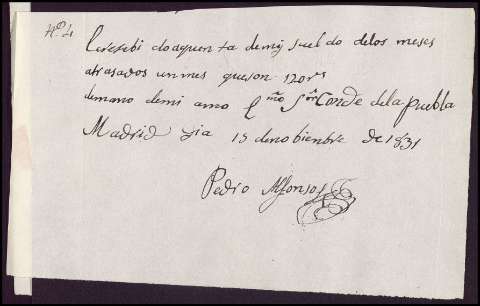 Nº 4
Reresebi doaquenta demi sueldo delos meses
atrasados unmes queson 120 rˢ
demano demi amo Eᵐᵒ Sᵒʳ Conde dela puebla
Madrid y dia 15 denobienbre de 1831
Pedro Alfonso